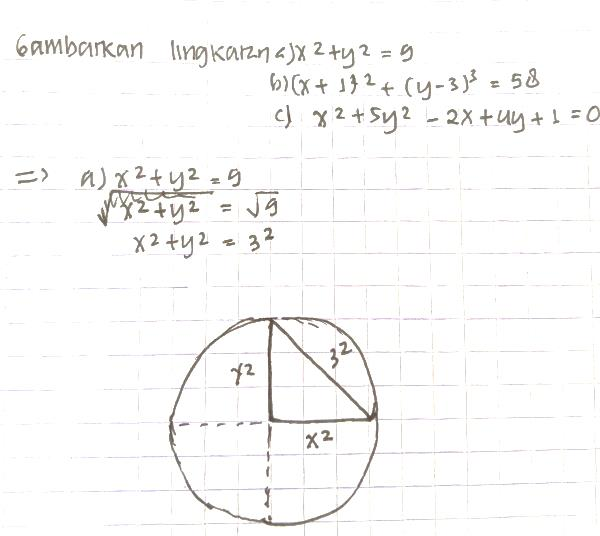 Gambarkan lingkaran a) x² + y² = 9
b) (x + 1)² + (y - 3)³ = 58
c) x² + 5y² - 2x + 4y + 1 = 0
=> a) x² + y² = 9
√x² + y² = √9
x² + y² = 3²
y²
3²
x²